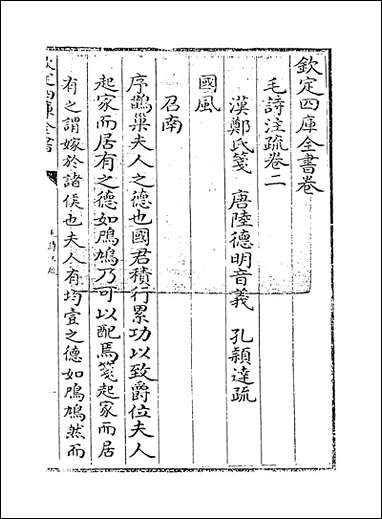 欽定四庫全書卷
毛詩注疏卷二
漢鄭氏箋 唐陸德明音義 孔穎達疏
國風
召南
序鵲巢夫人之德也國君積行累功以致爵位夫人
起家而居有之德如鳲鳩乃可以配焉箋起家而居
有之謂嫁於諸侯也夫人有均壹之德如鳲鳩然而
欽定四庫全書